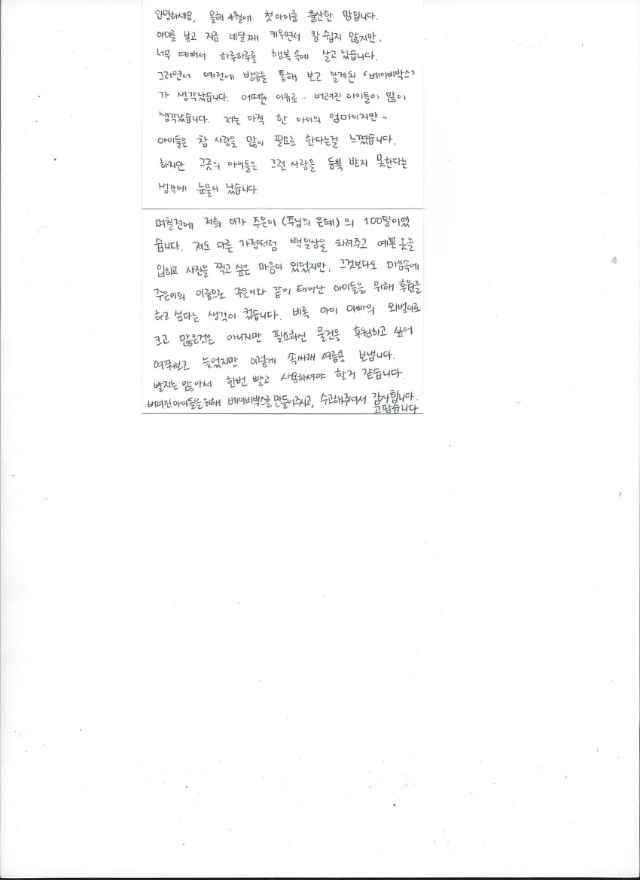 안녕하세요, 올해 4월에 첫 아이를 출산한 맘입니다.
아이를 낳고 지금 네달째 키우면서 참 쉽지 않지만,
너무 예뻐서 하루하루를 행복속에 살고 있습니다.
그러면서 예전에 방송을 통해 보고 알게된 "베이비박스"
가 생각났습니다. 어떠한 이유로.. 버려진 아이들이 많이
생각났습니다. 저는 아직 한 아이의 엄마이지만~
아이들은 참 사랑을 많이 필요로 한다는걸 느꼈습니다.
하지만 그곳의 아이들은 그런 사랑을 듬뿍 받지 못한다는
생각에 눈물이 났습니다.
며칠전에 저희 아가 주은이 (주님의 은혜) 의 100일이였
습니다. 저도 다른 가정처럼 백일상을 차려주고 예쁜 옷을
입히고 사진을 찍고 싶은 마음이 있었지만, 그것보다도 마음속에
주은이의 이름으로 주은이와 같이 태어난 아이들을 위해 후원을
하고 싶다는 생각이 컸습니다. 비록 아이 아빠의 외벌이로
크고 많은것은 아니지만 필요하신 물건을 후원하고 싶어
여쭤보고 늦었지만 이렇게 속싸개 여름용 보냅니다.
빨지는 않아서 한번 빨고 사용하셔야 할거 같습니다
버려진 아이들을 위해 베이비박스를 만들어주시고, 수고해주셔서 감사합니다.
고맙습니다